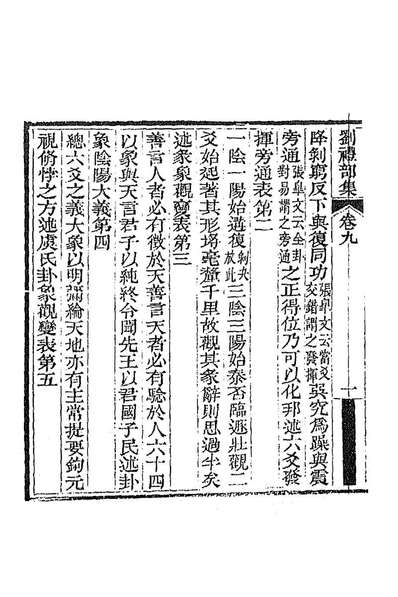 劉禮部集 卷九 一
降剝窮反下與復同功張皋文云當爻交錯謂之發揮巽究爲躁與震
旁通張皋文云全卦對易謂之旁通之正得位乃可以化邪述六爻發
揮旁通表第二
一陰一陽始遘復剝夬放此二陰三陽始泰否臨遯壯觀二
爻始起著其形埒毫釐千里故觀其彖辭則思過半矣
述彖象觀變表第三
善言人者必有徵於天善言天者必有驗於人六十四
以象與天言君子以純終令聞先王以君國子民述卦
象陰陽大義第四
總六爻之義大象以明彌綸天地亦有主常提要鉤元
視脩悖之方述虞氏卦象觀變表第五